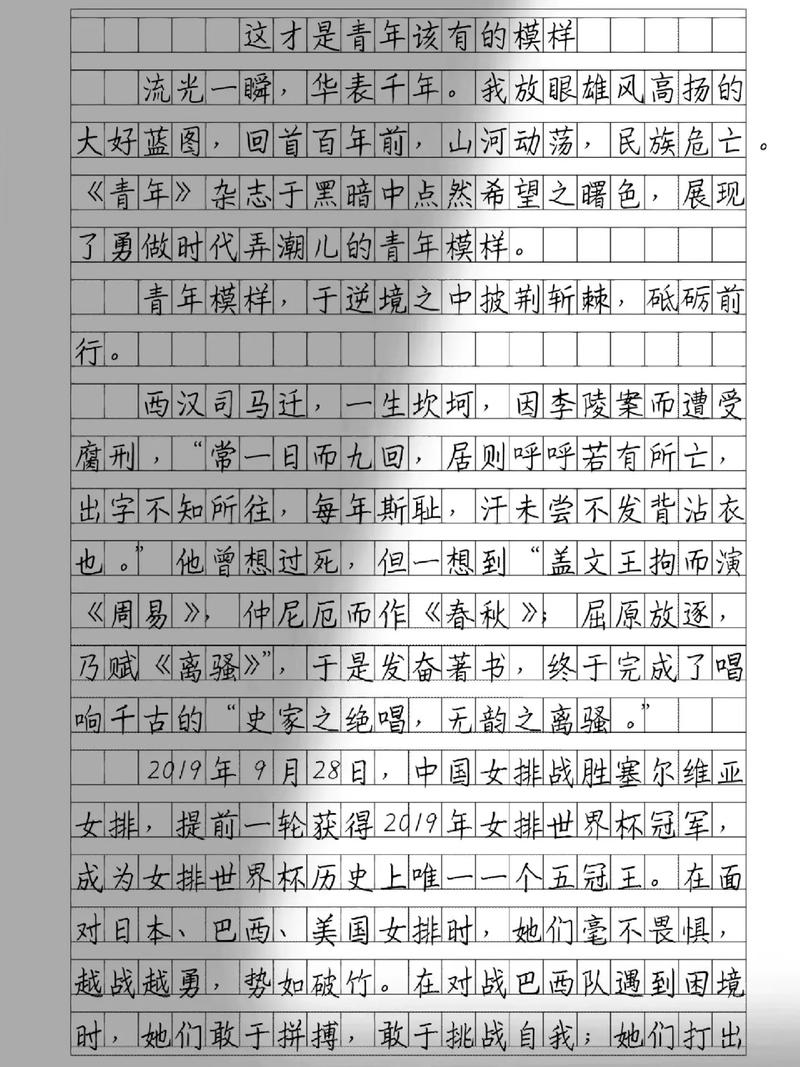 这才是青年该有的模样
流光一瞬，华表千年。我放眼雄风高扬的
大好蓝图，回首百年前，山河动荡，民族危亡。
《青年》杂志于黑暗中点然希望之曙色，展现
了勇做时代弄潮儿的青年模样。
青年模样，于逆境之中披荆斩棘，砥砺前
行。
西汉司马迁，一生坎坷，因李陵案而遭受
腐刑，“常一日而九回，居则呼呼若有所亡，
出字不知所往，每年斯耻，汗未尝不发背沾衣
也。”他曾想过死，但一想到“盖文王拘而演
《周易》；仲尼厄而作《春秋》；屈原放逐，
乃赋《离骚》”，于是发奋著书，终于完成了唱
响千古的“史家之绝唱，无韵之离骚。”
2019年9月28日，中国女排战胜塞尔维亚
女排，提前一轮获得2019年女排世界杯冠军，
成为女排世界杯历史上唯一一个五冠王。在面
对日本、巴西、美国女排时，她们毫不畏惧，
越战越勇，势如破竹。在对战巴西队遇到困境
时，她们敢于拼搏，敢于挑战自我；她们打出